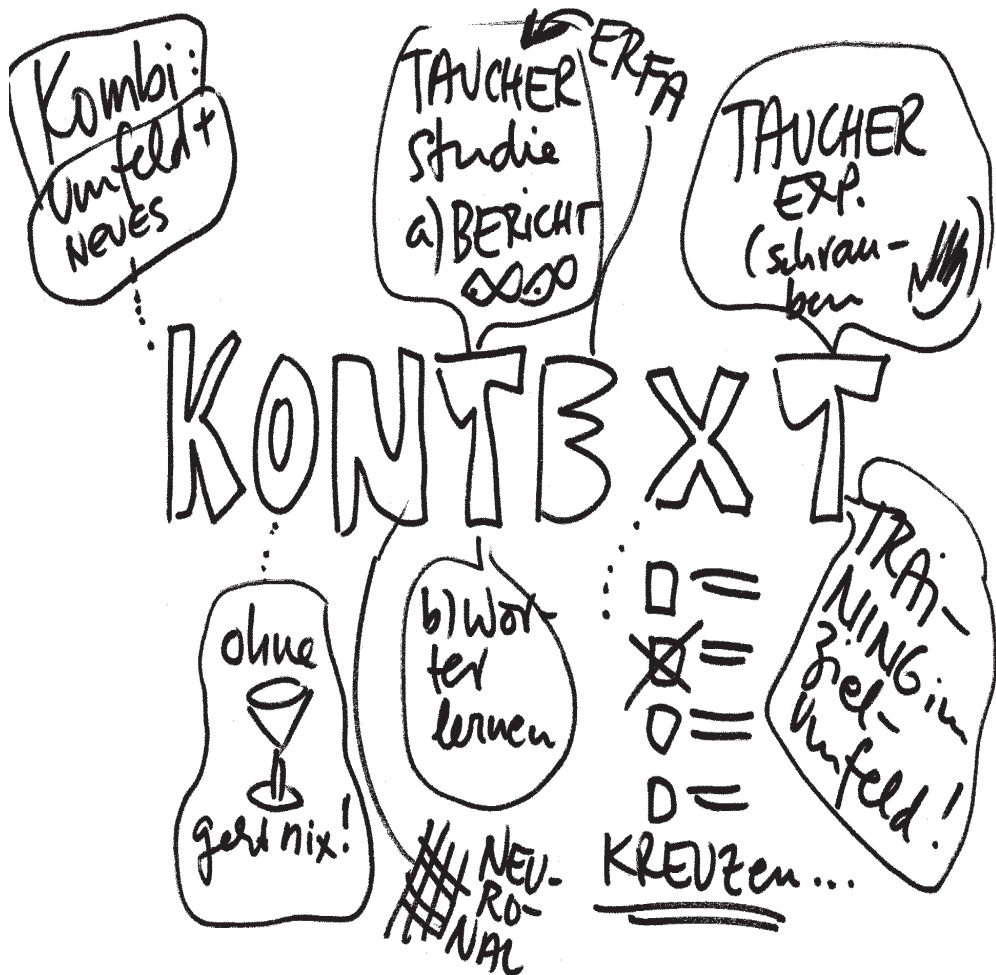 Kombi:
Umfeld +
NEUES
TAUCHER
studie
a) BERICHT
ERFA
TAUCHER
EXP.
(schrau-
ben
KONTEXT
ohne
geht nix!
b) Wör-
ter
lernen
NEU-
RO-
NAL
KREUZen...
TRAI-
NING im
Ziel-
umfeld!